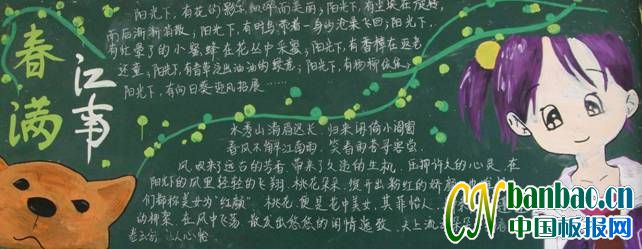 春满
江南
阳光下，有花的影子，细碎而美丽；阳光下，有尘埃在
而后渐渐消散；阳光下，有时鸟带着一身的泡来飞回；阳光下，
有忙晕了的小蜜蜂在花丛中采蜜；阳光下，有香樟在返老
还童；阳光下，有青草泛出油油的绿意；阳光下，有杨柳依依；
阳光下，有向日葵迎风招展……
水秀山清眉远长，归来闲倚小阁窗
春风不解江南雨，笑看雨巷寻客尝
风吹来了远古的芳香，带来了久违的生机，压抑许久的心灵，在
阳光下的风里轻轻的飞翔，桃花朵朵，绽开出粉红的娇颜
们都称美女为"红颜"，桃花，便是花中美女，其菲怡人
的柳絮，在风中飞荡，散发出悠悠的闲情逸致，天上流
人心怡
CN banbao.cn
中国板报网